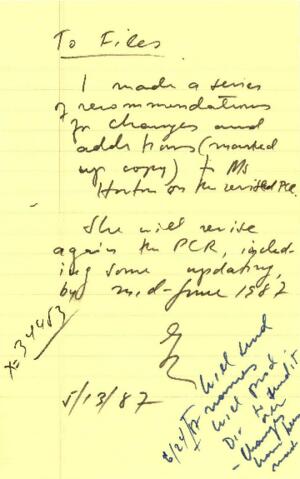 To Files
I made a series
of recommendations
for changes and
additions (marked
up copy) to Ms
Horton on the revised PCR.
She will revise
again the PCR, includ-
ing some updating,
by mid-June 1987
x 34453
5/13/87
6/24/87
will send
names
will
Div to
changes
have been
made